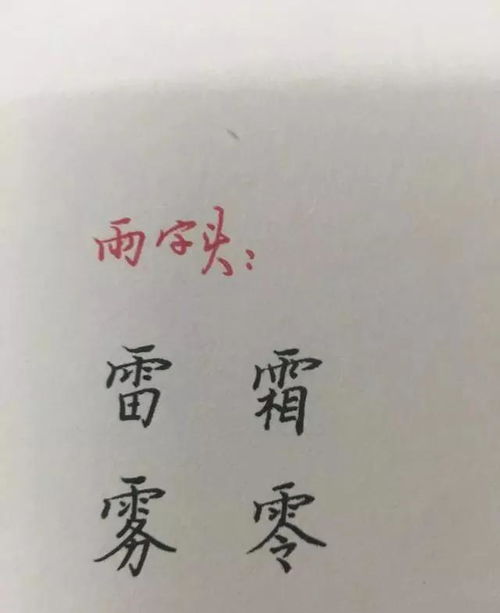 雨字头：
雷 霜
雾 零